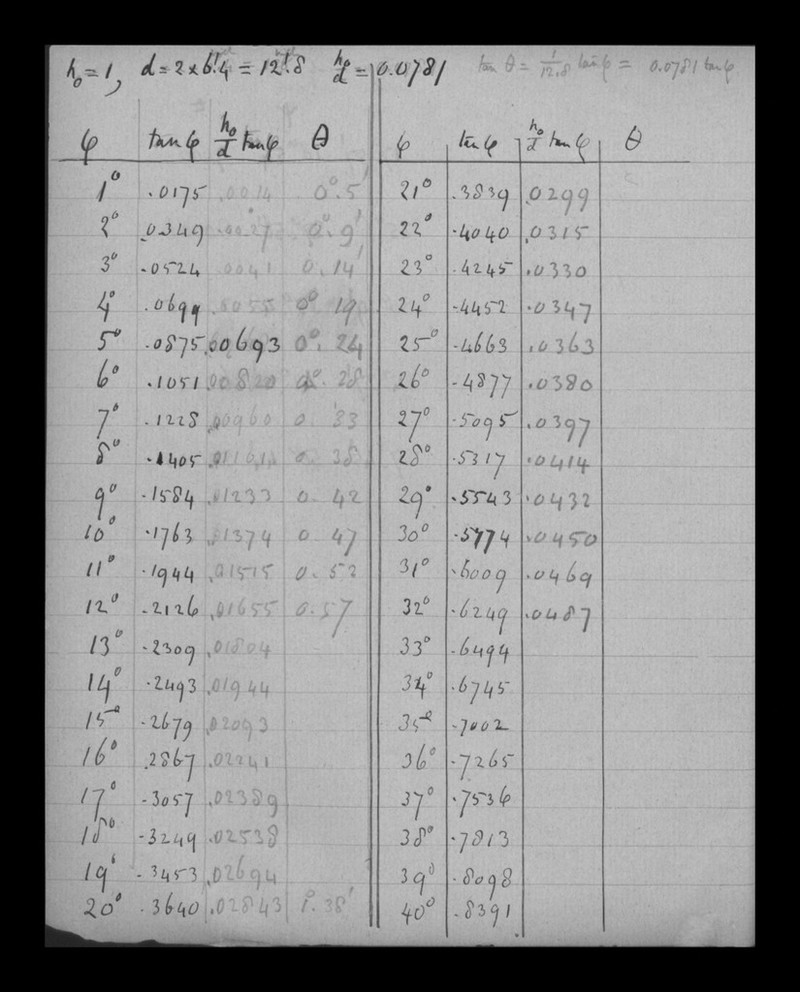 h₀ = 1, d = 2 × 6'.4 = 12'.8 h₀/d = 0.0781 tan θ = 1/12.8 tan φ = 0.0781 tan φ
φ tan φ h₀/d tan φ θ φ tan φ h₀/d tan φ θ
1° .0175 .0014 0°.5' 21° .3839 .0299
2° .0349 .0027 0°.9' 22° .4040 .0315
3° .0524 .0041 0.14' 23° .4245 .0330
4° .0699 .0055 0° 19 24° .4452 .0347
5° .0875 .00693 0°. 24 25° .4663 .0363
6° .1051 .00820 0°. 28 26° .4877 .0380
7° .1228 .00960 0. 33 27° .5095 .0397
8° .1405 0. 38 28° .5317 .0414
9° .1584 .01233 0. 42 29° .5543 .0432
10° .1763 .01374 0 47 30° .5774 .0450
11° .1944 .01515 0. 52 31° .6009 .0469
12° .2126 .01655 0.57 32° .6249 .0487
13° .2309 .01804 33° .6494
14° .2493 .01944 34° .6745
15° .2679 .02093 35° .7002
16° .2867 .02241 36° .7265
17° .3057 .02389 37° .7536
18° .3249 .02538 38° .7813
19° .3453 .02694 39° .8098
20° .3640 .02843 1°.38' 40° .8391